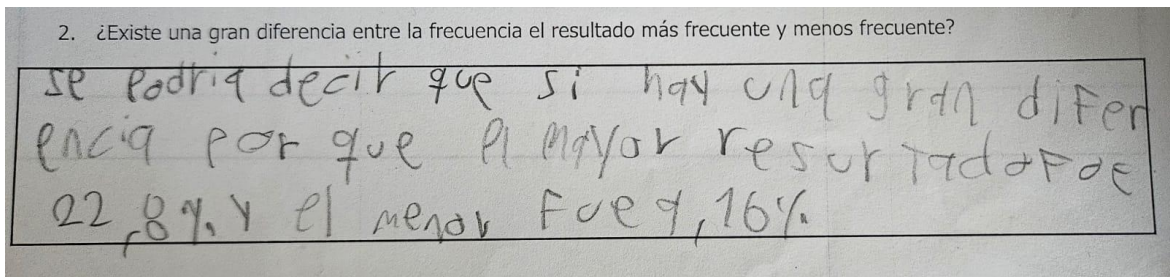 2. ¿Existe una gran diferencia entre la frecuencia el resultado más frecuente y menos frecuente?
se podria decir que si hay una gran difer
encia por que el mayor resurtado foe
22,8%. y el menor fue 9,16%